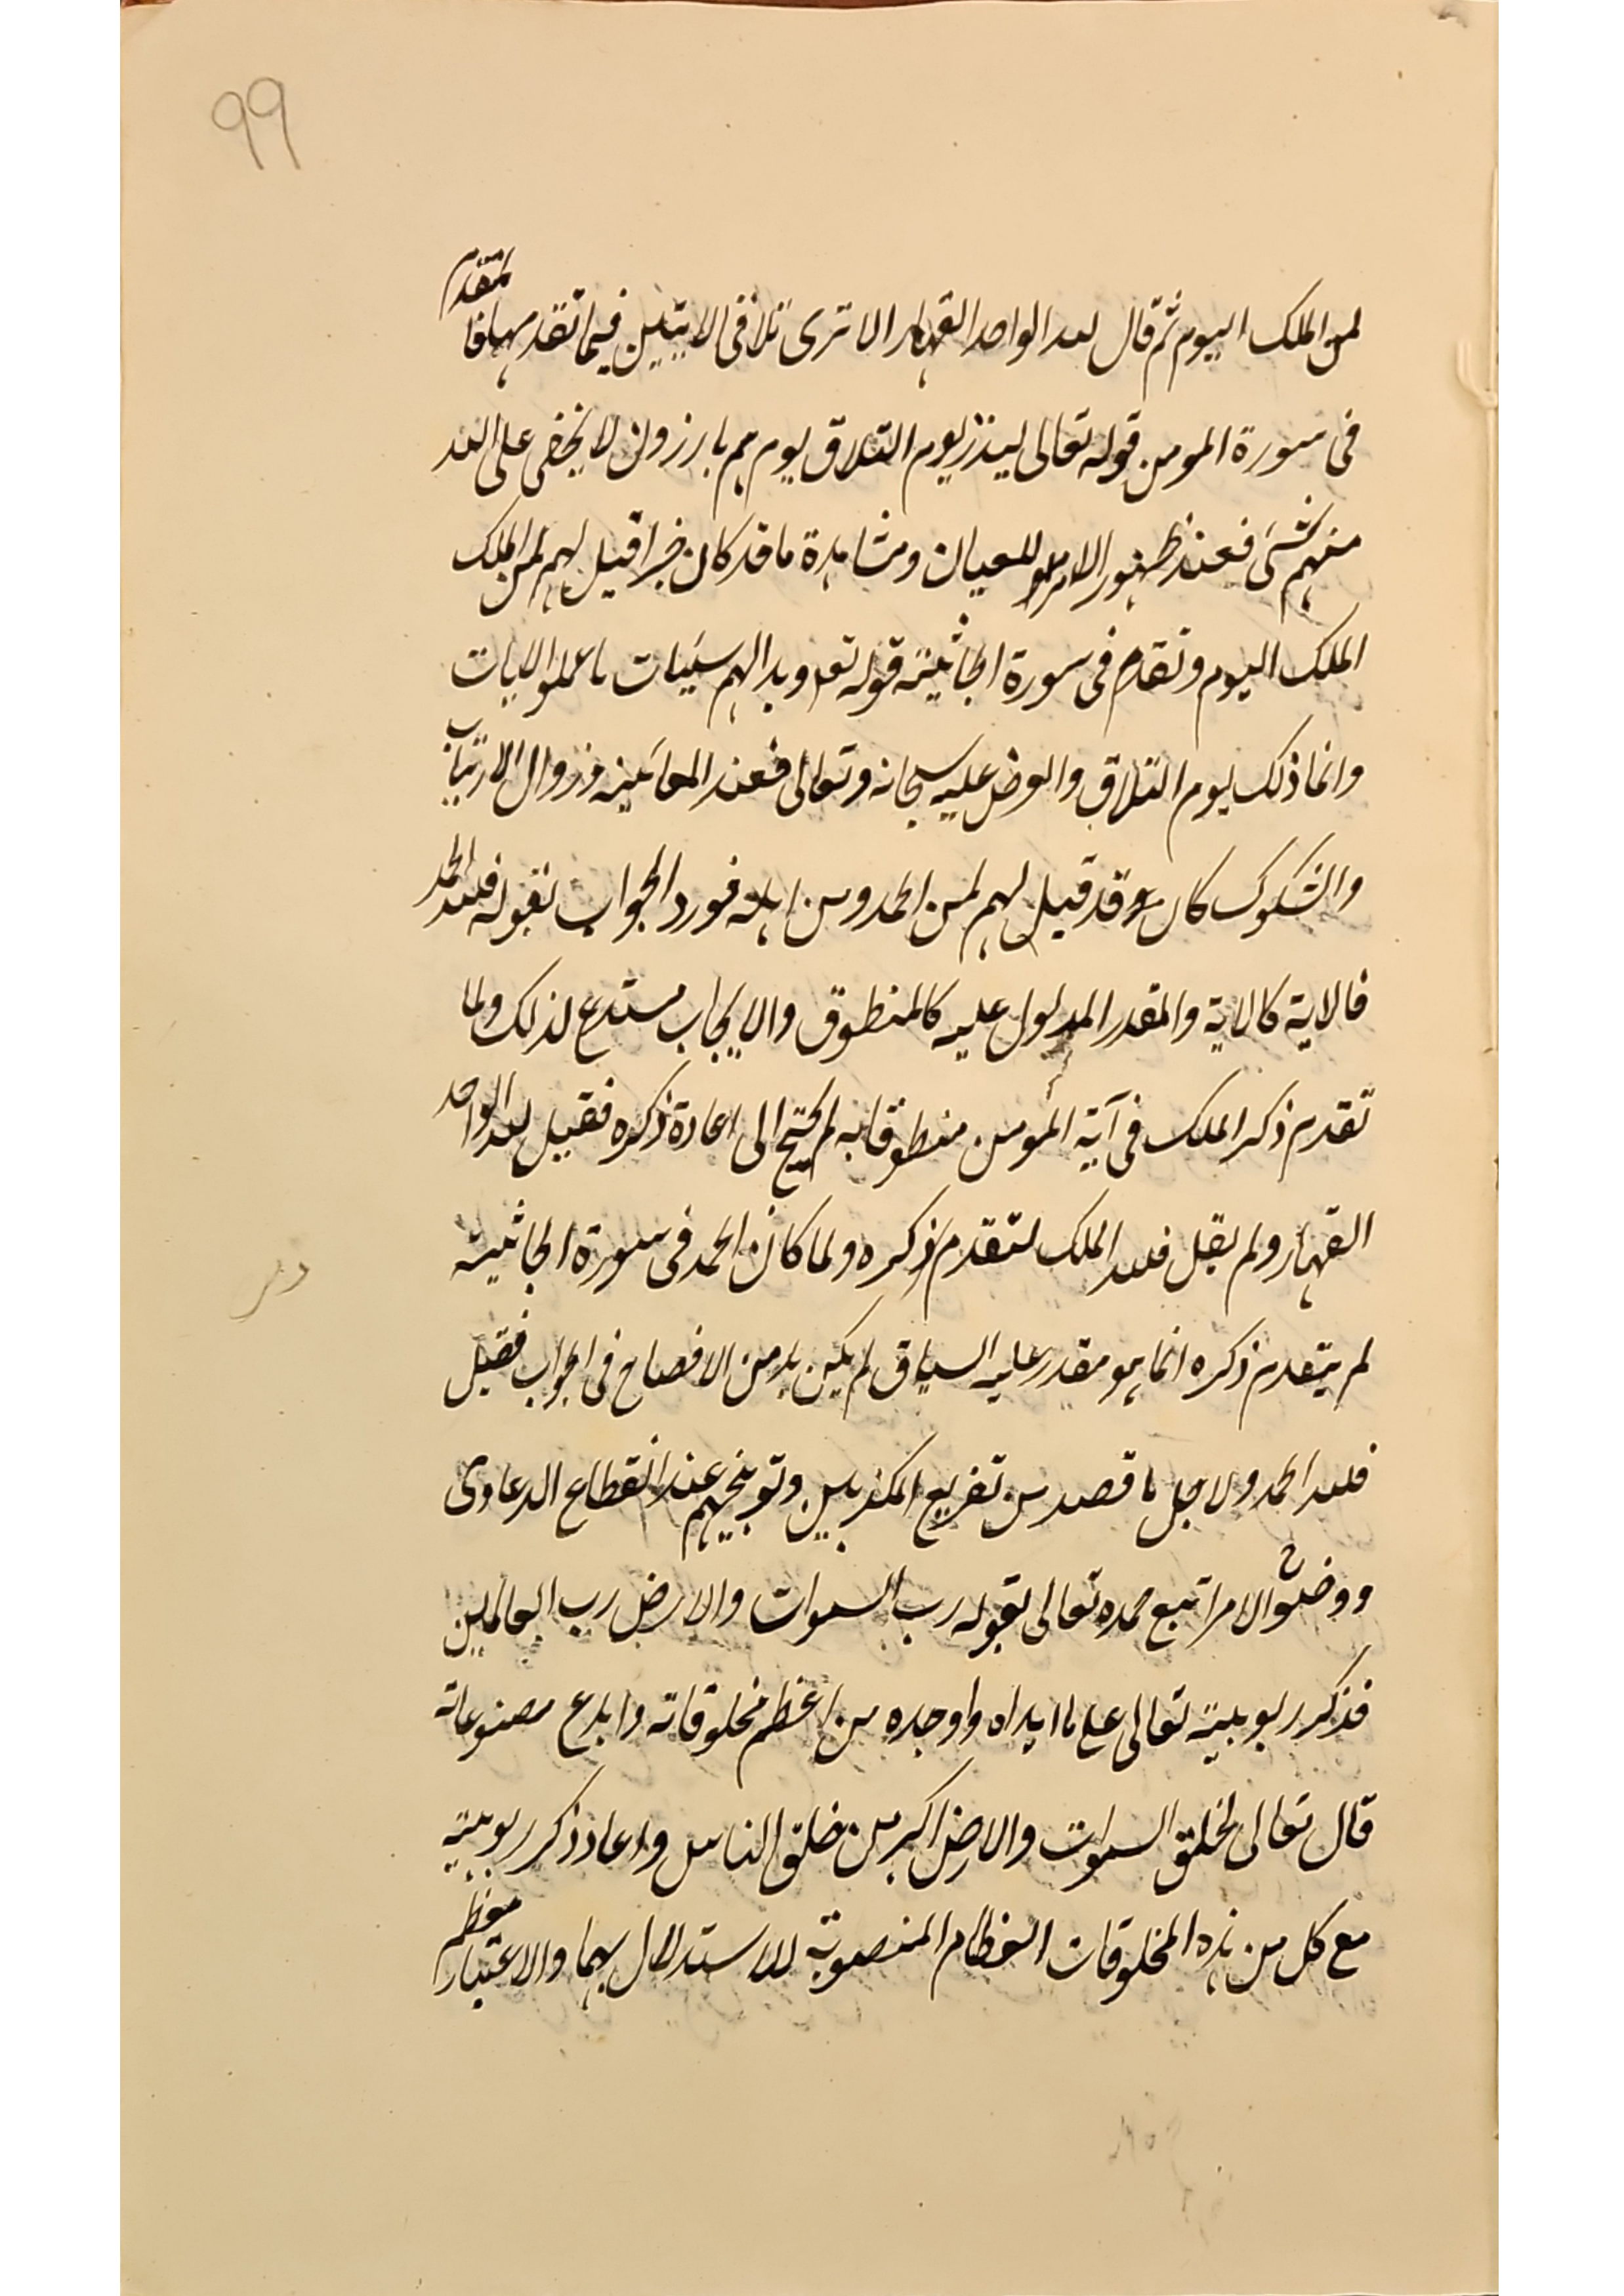 99
لمن الملك اليوم ثم قال لله الواحد القهار الا ترى تلاقى الايتين فيما تقدمهما فالمتقدم
فى سورة المومن قوله تعالى لينذر يوم التلاق يوم هم بارزون لا يخفى على الله
منهم شئ فعند ظهور الامر للعيان ومشاهدة ما قد كان خبرا قيل لهم لمن الملك
الملك اليوم وتقدم فى سورة الجاثية قوله تعه وبدا لهم سيئات ما عملوا الايات
وانما ذلك يوم التلاق والعرض عليه سبحانه وتعالى فعند المعاينة وزوال الارتياب
والشكوك كان قد قيل لهم لمن الحمد ومن اهله فورد الجواب بقوله فلله الحمد
فالاية كالاية والمقدر المدلول عليه كالمنطوق والايجاب مستدع لذلك ولما
تقدم ذكر الملك فى آية المؤمن منطوقا به لم يحتج الى اعادة ذكره فقيل لله الواحد
القهار ولم يقل فلله الملك لتقدم ذكره ولما كان الحمد فى سورة الجاثية
لم يتقدم ذكره انما هو مقدر عليه السياق لم يكن بد من الافصاح فى الجواب فقيل
فلله الحمد ولاجل ما قصد من تقريع المكذبين وتوبيخهم عند انقطاع الدعاوى
ووضوح الامر اتبع حمده تعالى بقوله رب السموات والارض رب العالمين
فذكر ربوبيته تعالى على ما ابداه واوجده من اعظم مخلوقاته وابدع مصنوعاته
قال تعالى لخلق السموات والارض اكبر من خلق الناس واعاد ذكر ربوبيته
مع كل من هذه المخلوقات العظام المنصوبة للاستدلال بهما والاعتبار معظم